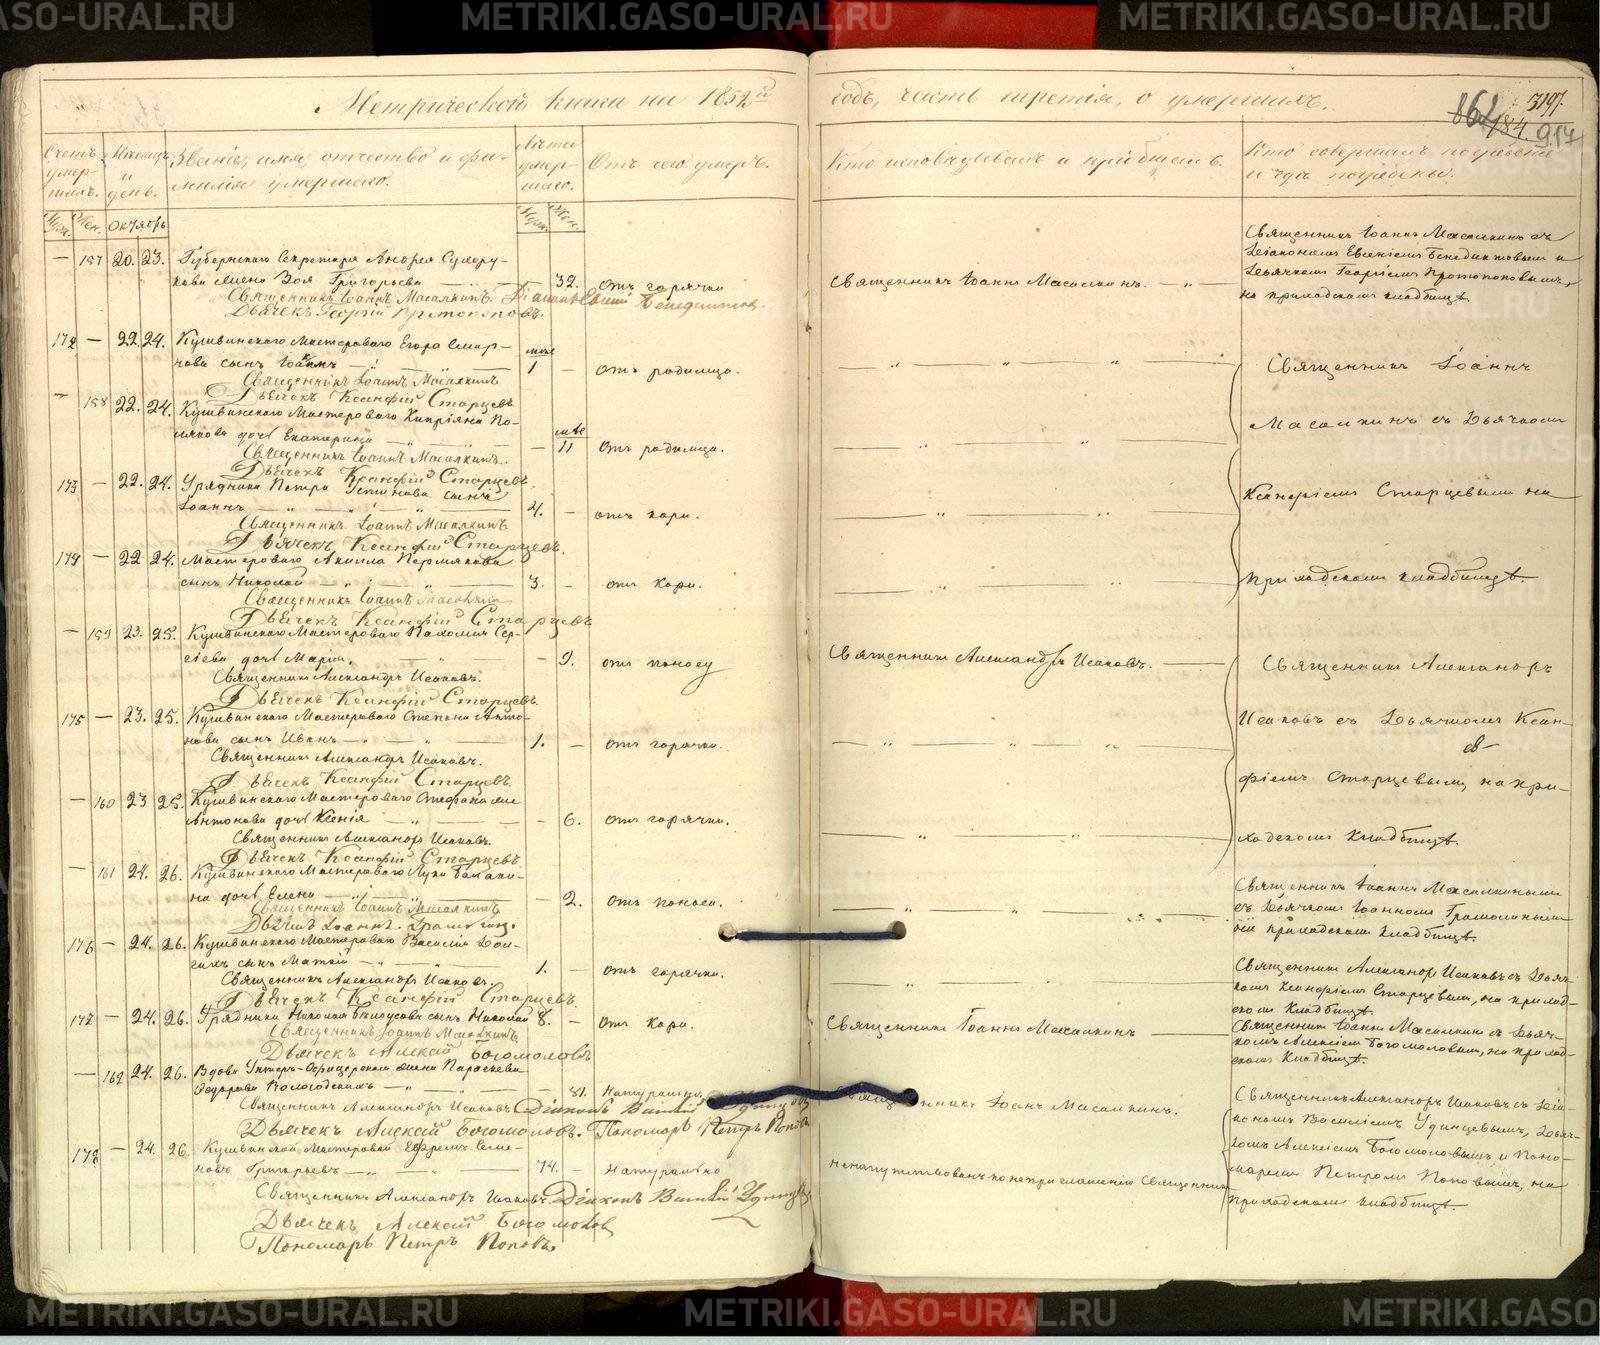 METRIKI.GASO-URAL.RU
METRIKI.GASO-URAL.RU
Метрической книги на 1852й
годъ, часть третія, о умершихъ.
862
184
917
Счетъ умер-шихъ.
Мѣсяцъ и день.
Званіе, имя, отчество и фа-
милія умершаго.
Лѣта умер-шаго.
Отъ чего умеръ.
Кто исповѣдывалъ и пріобщалъ.
Кто совершалъ погребеніе
и гдѣ погребены.
Муж. Жен. Октябрь Муж. Жен.
— 157 20. 23. Губернскаго Секретаря Андрея Сухору-
кова жена Зоя Григорьева — 32. отъ горячки
Священникъ Іоаннъ Масалкинъ. Діаконъ Евгеній Бенедиктовъ.
Дьячекъ Георгій Протопоповъ.
Священникъ Іоаннъ Масалкинъ. — „ —
Священникъ Іоаннъ Масалкинъ съ
Діакономъ Евгеніемъ Бенедиктовымъ и
Дьячкомъ Георгіемъ Протопоповымъ,
на приходскомъ кладбищѣ.
172 — 22. 24. Кушвинскаго Мастероваго Егора Смир-
нова сынъ Іоаннъ — 1 — отъ родимца.
Священникъ Іоаннъ Масалкинъ
Дьячекъ Ксанфій Старцевъ
— 158 22. 24. Кушвинскаго Мастероваго Кипріяна По-
лякова дочь Екатерина — 11 отъ родимца.
Священникъ Іоаннъ Масалкинъ.
Дьячекъ Ксанфій Старцевъ.
173 — 22. 24. Урядника Петра Устинова сынъ
Іоаннъ — 4. — отъ кори.
Священникъ Іоаннъ Масалкинъ
Дьячекъ Ксанфій Старцевъ.
174 — 22 24. Мастероваго Акилла Пермякова
сынъ Николай — 3. — отъ кори.
Священникъ Іоаннъ Масалкинъ
Дьячекъ Ксанфій Старцевъ
Священникъ Іоаннъ
Масалкинъ съ Дьячкомъ
Ксанфіемъ Старцевымъ на
приходскомъ кладбищѣ.
— 159 23. 25. Кушвинскаго Мастероваго Пахомія Сер-
гіева дочь Марія. — 9. отъ поносу
Священникъ Александръ Исаковъ.
Дьячекъ Ксанфій Старцевъ.
Священникъ Александръ Исаковъ. —
175 — 23. 25. Кушвинскаго Мастероваго Степана Анто-
нова сынъ Иванъ — 1. — отъ горячки.
Священникъ Александръ Исаковъ.
Дьячекъ Ксанфій Старцевъ.
— 160 23 25. Кушвинскаго Мастероваго Стефана
Антонова дочь Ксенія — 6. отъ горячки.
Священникъ Александръ Исаковъ.
Дьячекъ Ксанфій Старцевъ.
Священникъ Александръ
Исаковъ съ Дьячкомъ Ксан-
фіемъ Старцевымъ, на при-
ходскомъ кладбищѣ.
— 161 24. 26. Кушвинскаго Мастероваго Луки
на дочь Елена — 2. отъ поноса.
Священникъ Іоаннъ Масалкинъ
Дьячекъ Іоаннъ Грамолинъ.
Священникъ Іоаннъ Масалкинымъ
съ Дьячкомъ Іоанномъ Грамолинымъ
на приходскомъ кладбищѣ.
176 — 24. 26. Кушвинскаго Мастероваго Василія Дол-
гихъ сынъ Матвій — 1. — отъ горячки.
Священникъ Александръ Исаковъ,
Дьячекъ Ксанфій Старцевъ.
Священникъ Александръ Исаковъ съ Дьяч-
комъ Ксанфіемъ Старцевымъ, на приход-
скомъ кладбищѣ.
177 — 24. 26. Урядника Николая Бѣлоусова сынъ Николай 8. — отъ кори.
Священникъ Іоаннъ Масалкинъ
Дьячекъ Алексій Богомоловъ
Священникъ Іоаннъ Масалкинъ —
Священникъ Іоаннъ Масалкинъ съ Дьяч-
комъ Алексіемъ Богомоловымъ, на приход-
скомъ кладбищѣ.
— 162 24. 26. Вдова Унтеръ-Офицерская жена Параскева
Ѳедорова Вологодскихъ — 81. Натурально.
Священникъ Александръ Исаковъ Діаконъ Василій Удинцовъ
Дьячекъ Алексій Богомоловъ. Пономарь Петръ Поповъ
Священникъ Іоаннъ Масалкинъ.
178 — 24. 26 Кушвинской Мастеровой Ефремъ Семе-
новъ Григорьевъ — 74. — Натурально
Священникъ Александръ Исаковъ. Діаконъ Василій Удинцовъ
Дьячекъ Алексій Богомоловъ
Пономарь Петръ Поповъ.
ненапутствованъ по неприглашенію Священника
Священникъ Александръ Исаковъ съ Діа-
кономъ Василіемъ Удинцевымъ, Дьяч-
комъ Алексіемъ Богомоловымъ и Поно-
маремъ Петромъ Поповымъ, на
приходскомъ кладбищѣ.
METRIKI.GASO-URAL.RU
METRIKI.GASO-URAL.RU
METRIKI.GASO